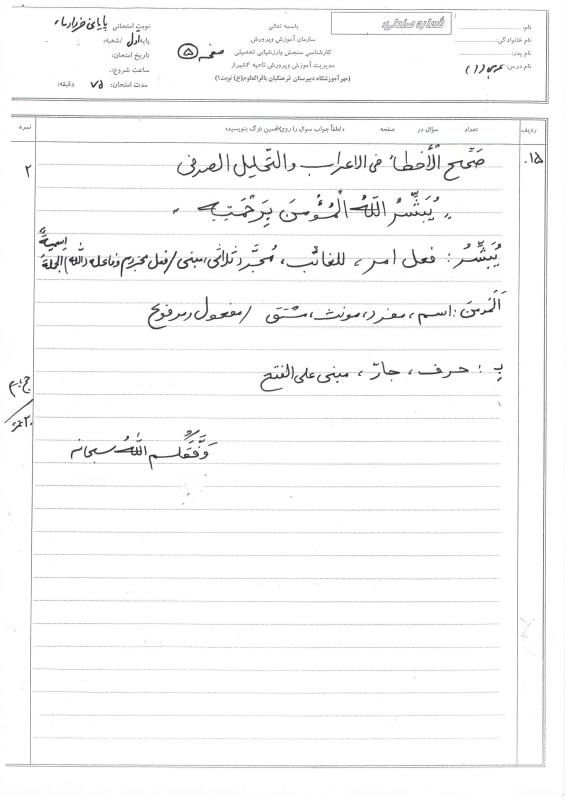 نام:
نام خانوادگی:
نام پدر:
نام درس: عربی (۱)
شماره صندلی:
باسمه تعالی
سازمان آموزش و پرورش
کارشناسی سنجش وارزشیابی تحصیلی
مدیریت آموزش وپرورش ناحیه ۴شیراز
(مهرآموزشگاه دبیرستان فرهنگیان باقرالعلوم(ع) نوبت۱)
صفحه ۵
نوبت امتحانی: پایانی خرداد ماه
پایه: اول /شعبه:
تاریخ امتحان:
ساعت شروع:
مدت امتحان: ۷۵ دقیقه:
ردیف تعداد سؤال در صفحه ، لطفاً جواب سوال را روی همین برگ بنویسید، نمره
۱۵. صَحِّح الْأخطاءَ فی الاعراب والتّحلیل الصرفی ۲
« یُبَشِّرُ اللّهُ الْمُؤْمِنَ بِرَحْمَتِهِ »
یُبَشِّرُ : فعل امر ، للغائب ، مُجَرَّد ثلاثی ، مبنی / فعل مجزوم و فاعله (اللّه) الجملةُ اسمیةٌ
الْمُؤمِنَ : اسم ، مفرد ، مونث ، مشتق / مفعول و مرفوع
بِـ : حرف ، جارّ ، مبنی علی الفتح
جمع
۲۰ نمره
وَفَّقَکُم اللّهُ سبحانه